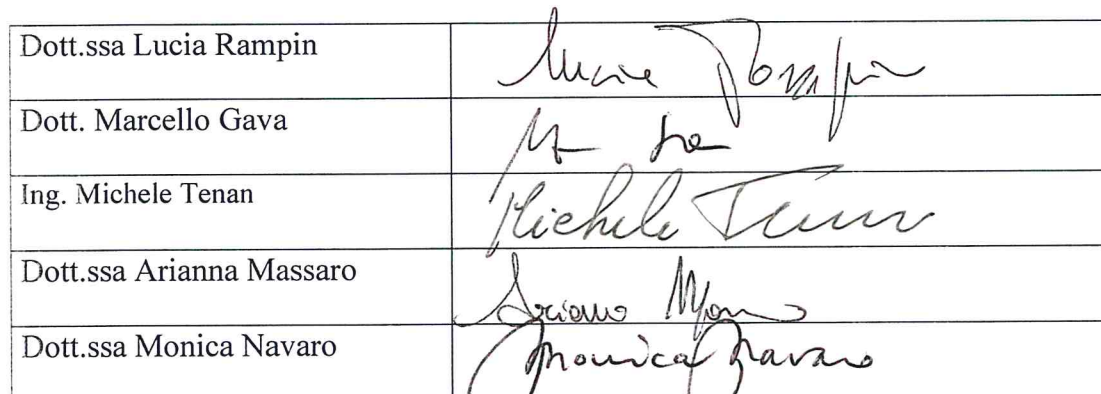 Dott.ssa Lucia Rampin Lucia Rampin
Dott. Marcello Gava
Ing. Michele Tenan Michele Tenan
Dott.ssa Arianna Massaro
Dott.ssa Monica Navaro Monica Navaro